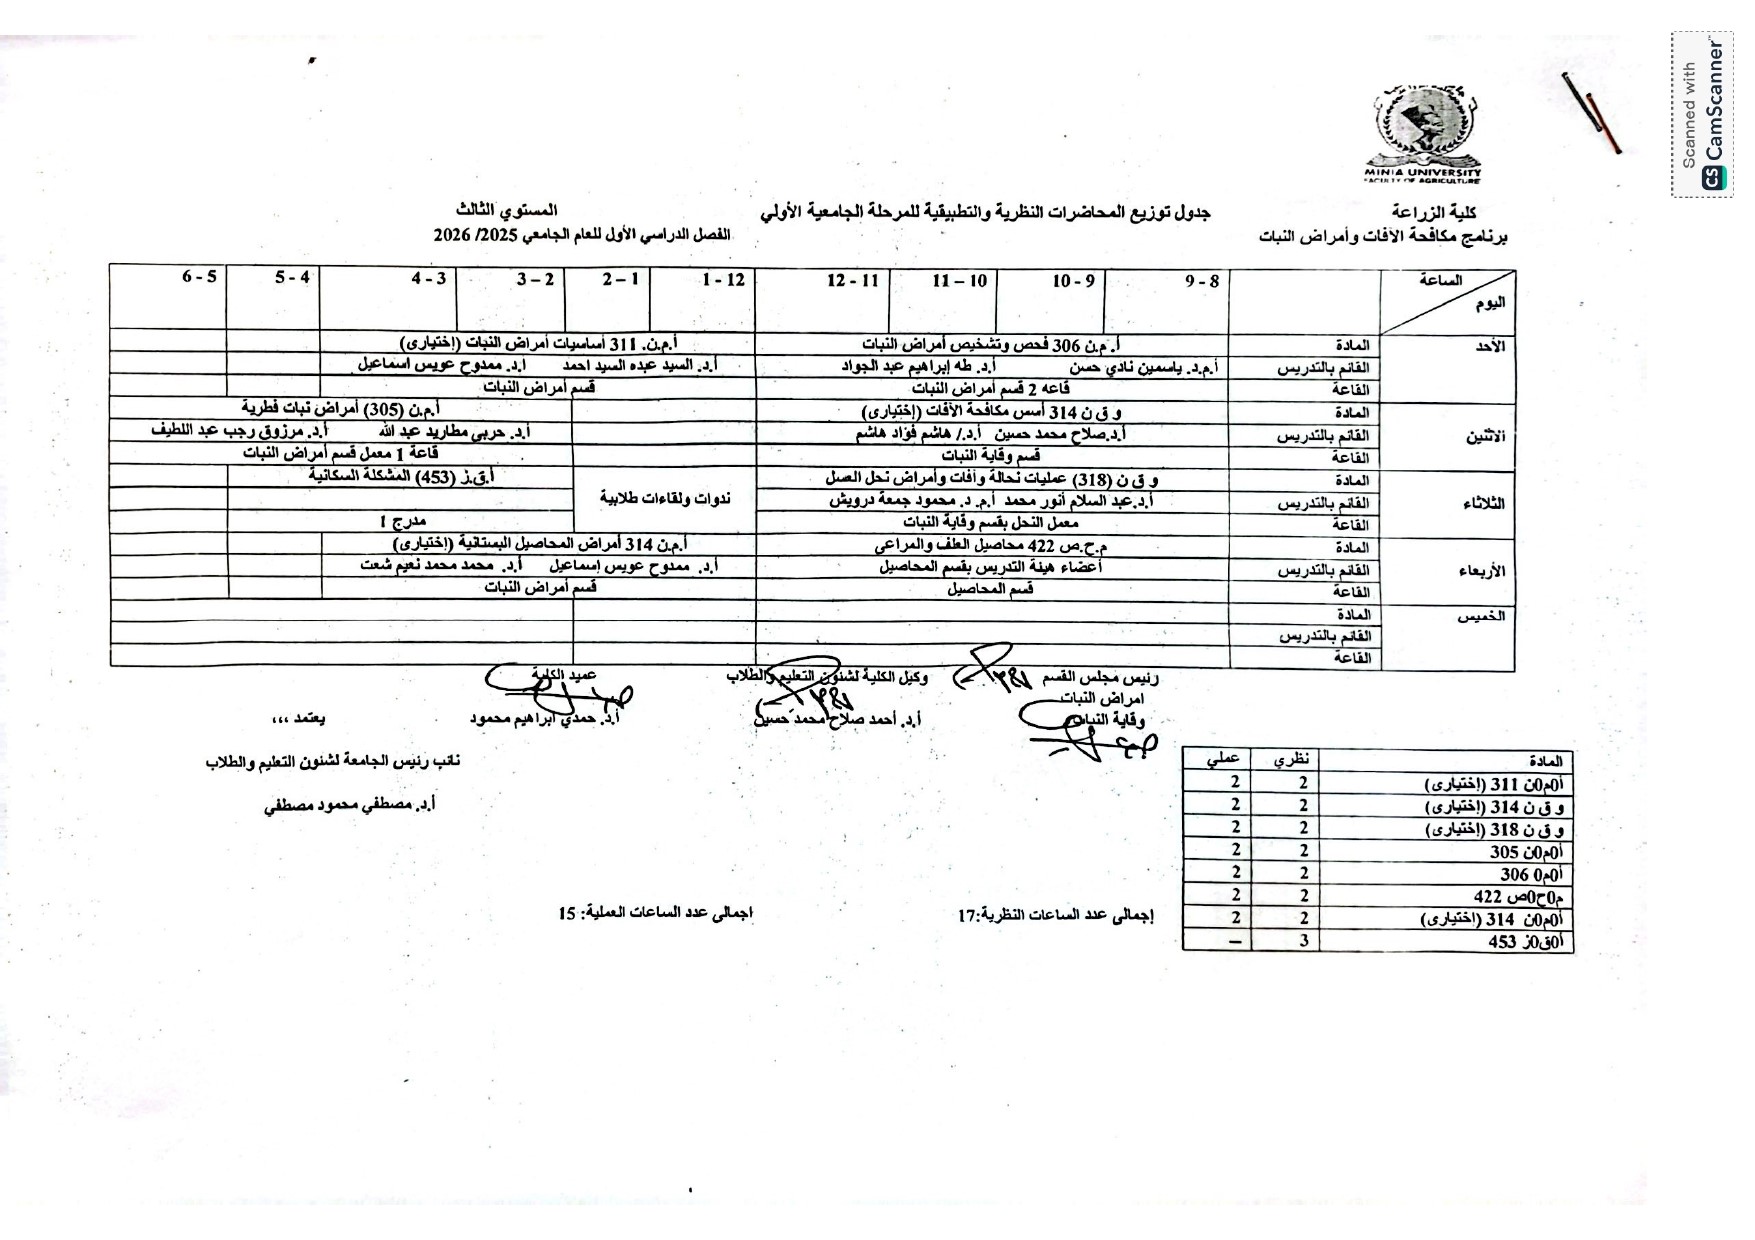 Scanned with
CS CamScanner
MINIA UNIVERSITY
FACULTY OF AGRICULTURE
كلية الزراعة
برنامج مكافحة الآفات وأمراض النبات
جدول توزيع المحاضرات النظرية والتطبيقية للمرحلة الجامعية الأولي
المستوي الثالث
الفصل الدراسي الأول للعام الجامعي 2025/ 2026
الساعة 8 - 9 9 - 10 10 – 11 11 - 12 12 - 1 1 – 2 2 – 3 3 - 4 4 - 5 5 - 6
اليوم
الأحد المادة أ.م.ن 306 فحص وتشخيص أمراض النبات أ.م.ن. 311 أساسيات أمراض النبات (إختيارى)
القائم بالتدريس أ.م.د. ياسمين نادي حسن أ.د. طه إبراهيم عبد الجواد أ.د. السيد عبده السيد احمد أ.د. ممدوح عويس اسماعيل
القاعة قاعه 2 قسم أمراض النبات قسم أمراض النبات
الاثنين المادة و ق ن 314 أسس مكافحة الآفات (إختيارى) أ.م.ن (305) أمراض نبات فطرية
القائم بالتدريس أ.د.صلاح محمد حسين أ.د./ هاشم فؤاد هاشم أ.د. حربي مطاريد عبد الله أ.د. مرزوق رجب عبد اللطيف
القاعة قسم وقاية النبات قاعة 1 معمل قسم أمراض النبات
الثلاثاء المادة و ق ن (318) عمليات نحالة وآفات وأمراض نحل العسل ندوات ولقاءات طلابية أ.ق.ز (453) المشكلة السكانية
القائم بالتدريس أ.د.عبد السلام أنور محمد أ.م. د. محمود جمعة درويش
القاعة معمل النحل بقسم وقاية النبات مدرج 1
الأربعاء المادة م.ح.ص 422 محاصيل العلف والمراعي أ.م.ن 314 أمراض المحاصيل البستانية (إختيارى)
القائم بالتدريس أعضاء هيئة التدريس بقسم المحاصيل أ.د. ممدوح عويس إسماعيل أ.د. محمد محمد نعيم شعت
القاعة قسم المحاصيل قسم أمراض النبات
الخميس المادة
القائم بالتدريس
القاعة
رئيس مجلس القسم وكيل الكلية لشئون التعليم والطلاب عميد الكلية
امراض النبات
وقاية النبات أ.د. أحمد صلاح محمد حسين أ.د. حمدي ابراهيم محمود يعتمد ،،،
نائب رئيس الجامعة لشئون التعليم والطلاب
أ.د. مصطفي محمود مصطفي
المادة نظري عملي
أ0م0ن 311 (إختيارى) 2 2
و ق ن 314 (إختيارى) 2 2
و ق ن 318 (إختيارى) 2 2
أ0م0ن 305 2 2
أ0م0 306 2 2
م0ح0ص 422 2 2
أ0م0ن 314 (إختيارى) 2 2
أ0ق0ز 453 3 –
إجمالى عدد الساعات النظرية:17 اجمالى عدد الساعات العملية: 15